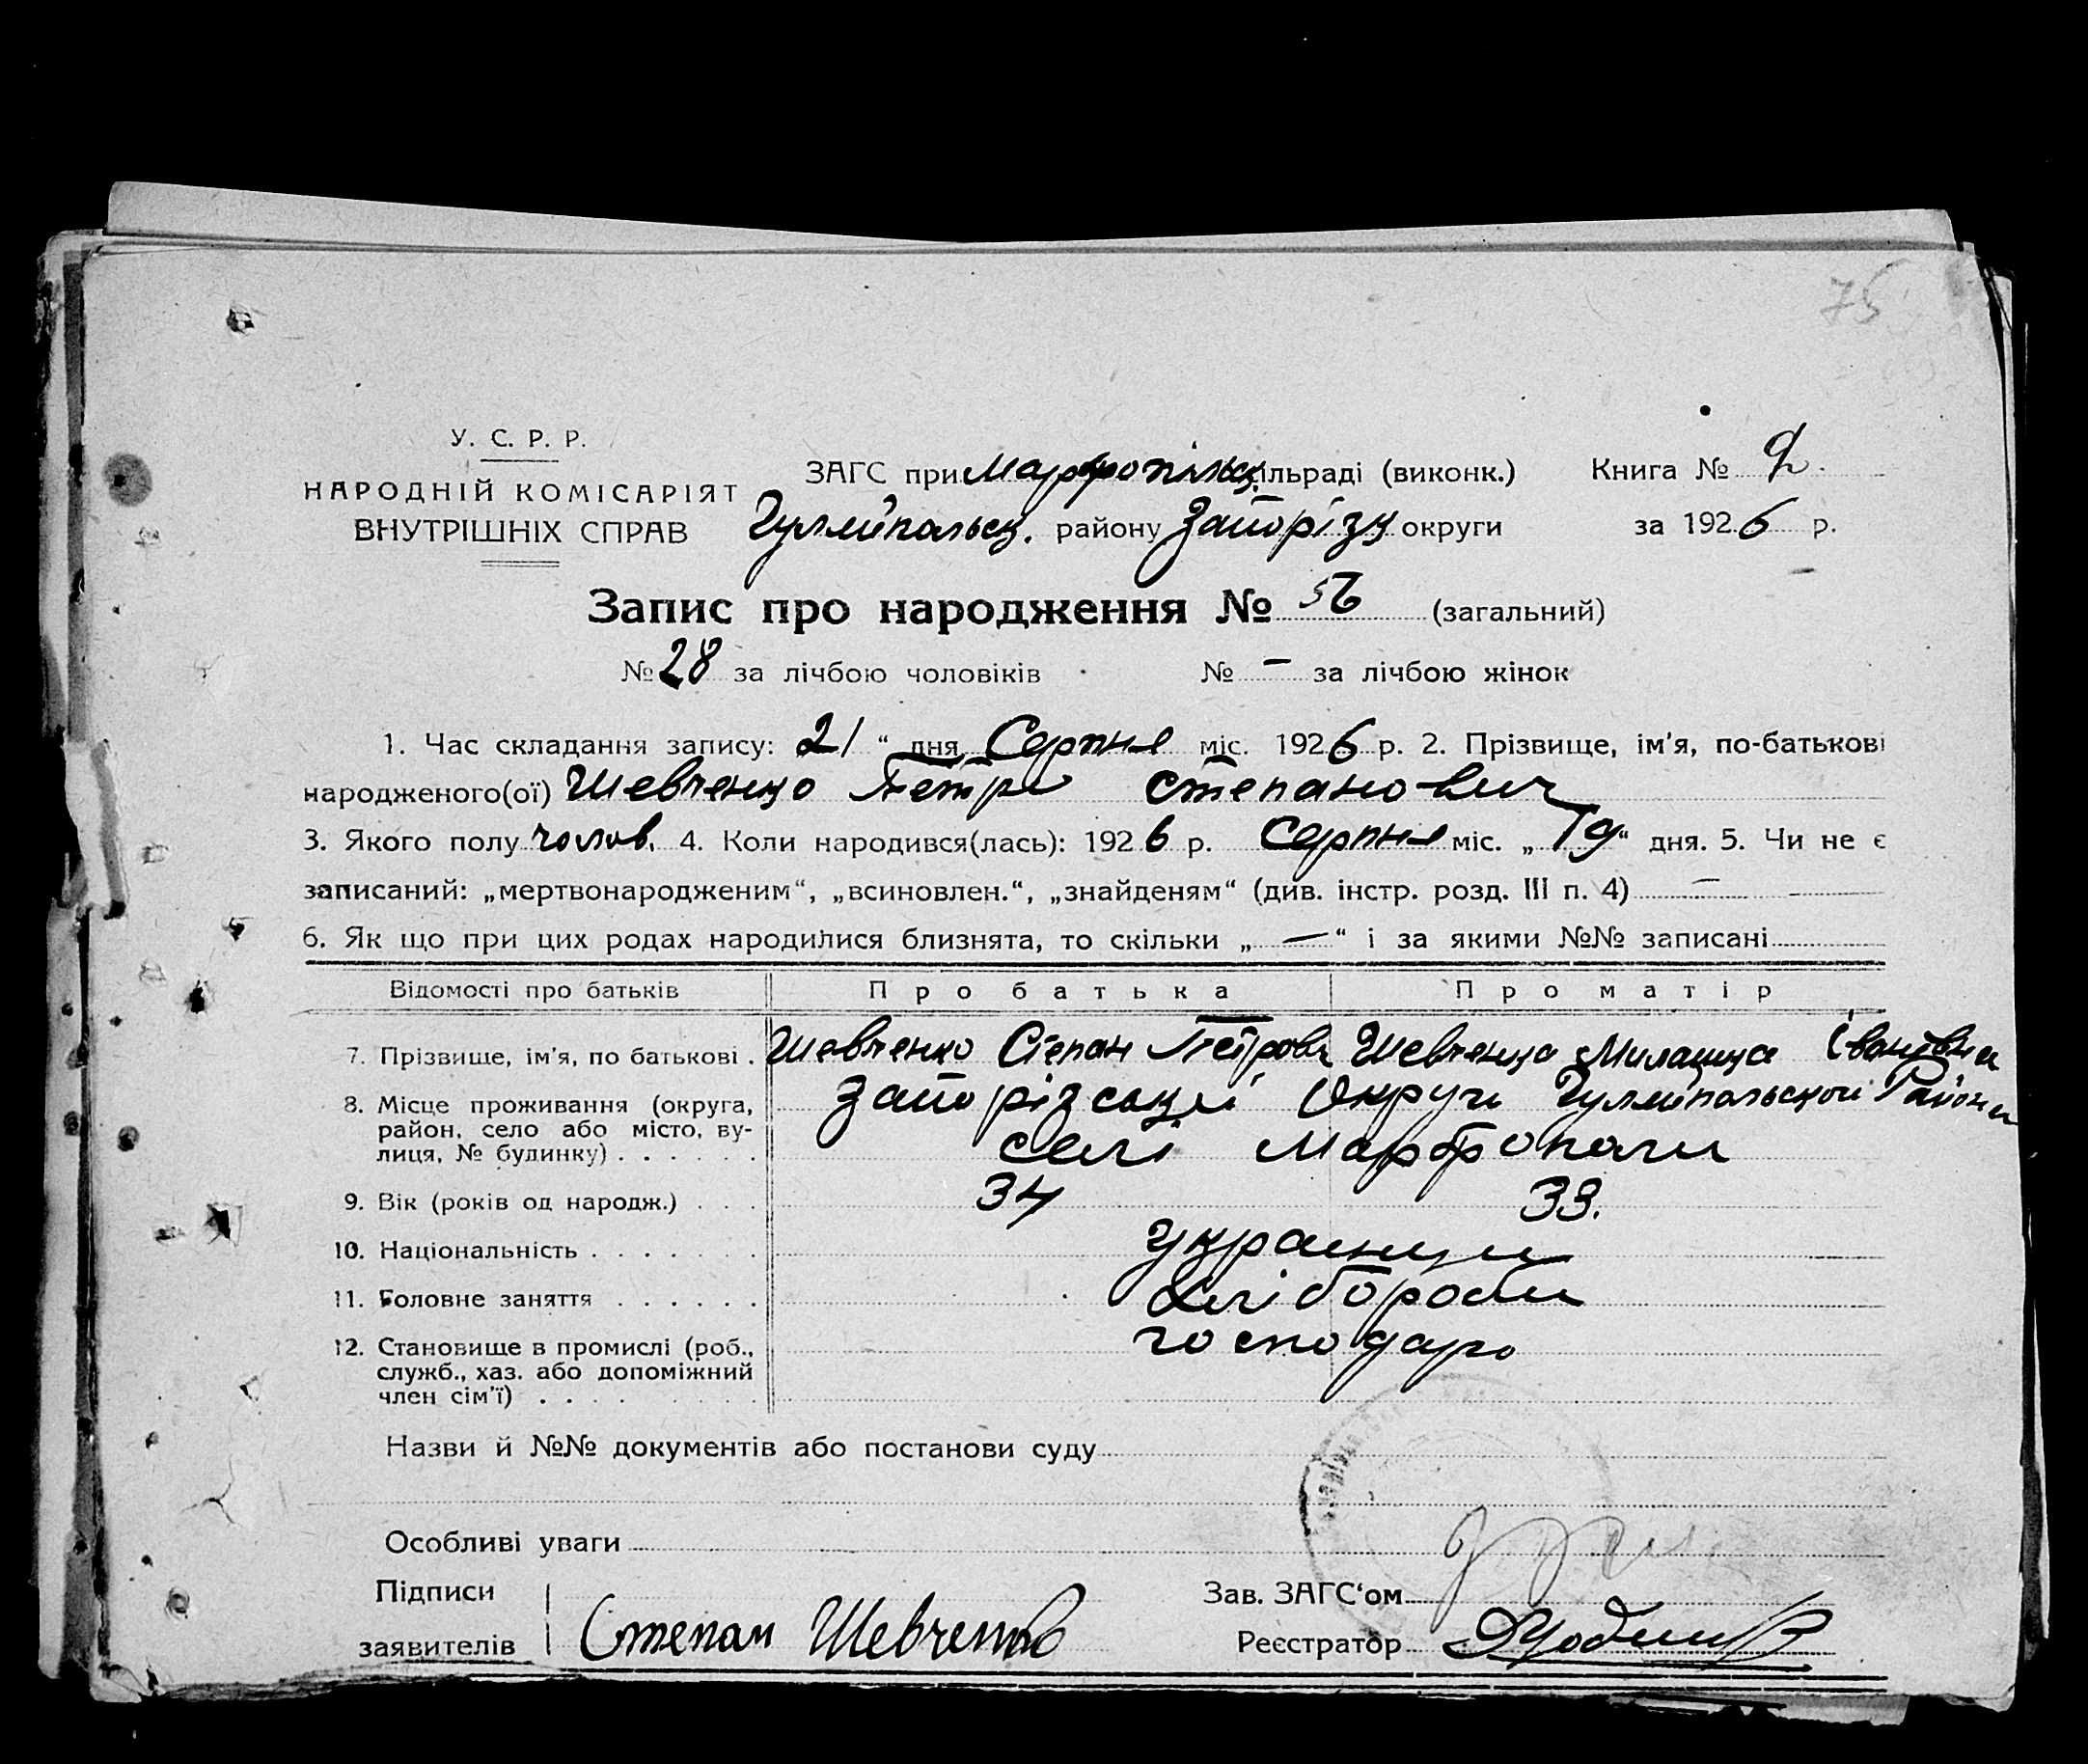 75
У. С. Р. Р.
НАРОДНІЙ КОМІСАРІЯТ
ВНУТРІШНІХ СПРАВ
ЗАГС при Марфопільск. сільраді (виконк.) Книга № 2.
Гуляйпольск. району Запорізк округи за 1926 р.
Запис про народження № 56 (загальний)
№ 28 за лічбою чоловіків № — за лічбою жінок
1. Час складання запису: 21 “ дня Серпня міс. 1926 р. 2. Прізвище, ім'я, по-батькові
народженого(ої) Шевченко Петро Степанович
3. Якого полу чолов. 4. Коли народився(лась): 1926 р. Серпня міс. „ 19 “ дня. 5. Чи не є
записаний: „мертвонародженим“, „всиновлен.“, „знайденям“ (див. інстр. розд. III п. 4) —
6. Як що при цих родах народилися близнята, то скільки „ — “ і за якими №№ записані
Відомості про батьків Про батька Про матір
7. Прізвище, ім'я, по батькові . Шевченко Степан Петров Шевченко Івановна
8. Місце проживання (округа, район, село або місто, вулиця, № будинку) . . . . . . Запорізської Округи Гуляйпольской Района
селі Марфополи
9. Вік (років од народж.) . . . 34 33.
10. Національність . . . . . . . Українци
11. Головне заняття . . . . . . Хлібороби
12. Становище в промислі (роб., служб., хаз. або допоміжний член сім'ї) . . . . господарь
Назви й №№ документів або постанови суду
Особливі уваги
Підписи
заявителів Степан Шевченко
Зав. ЗАГС‘ом
Реєстратор